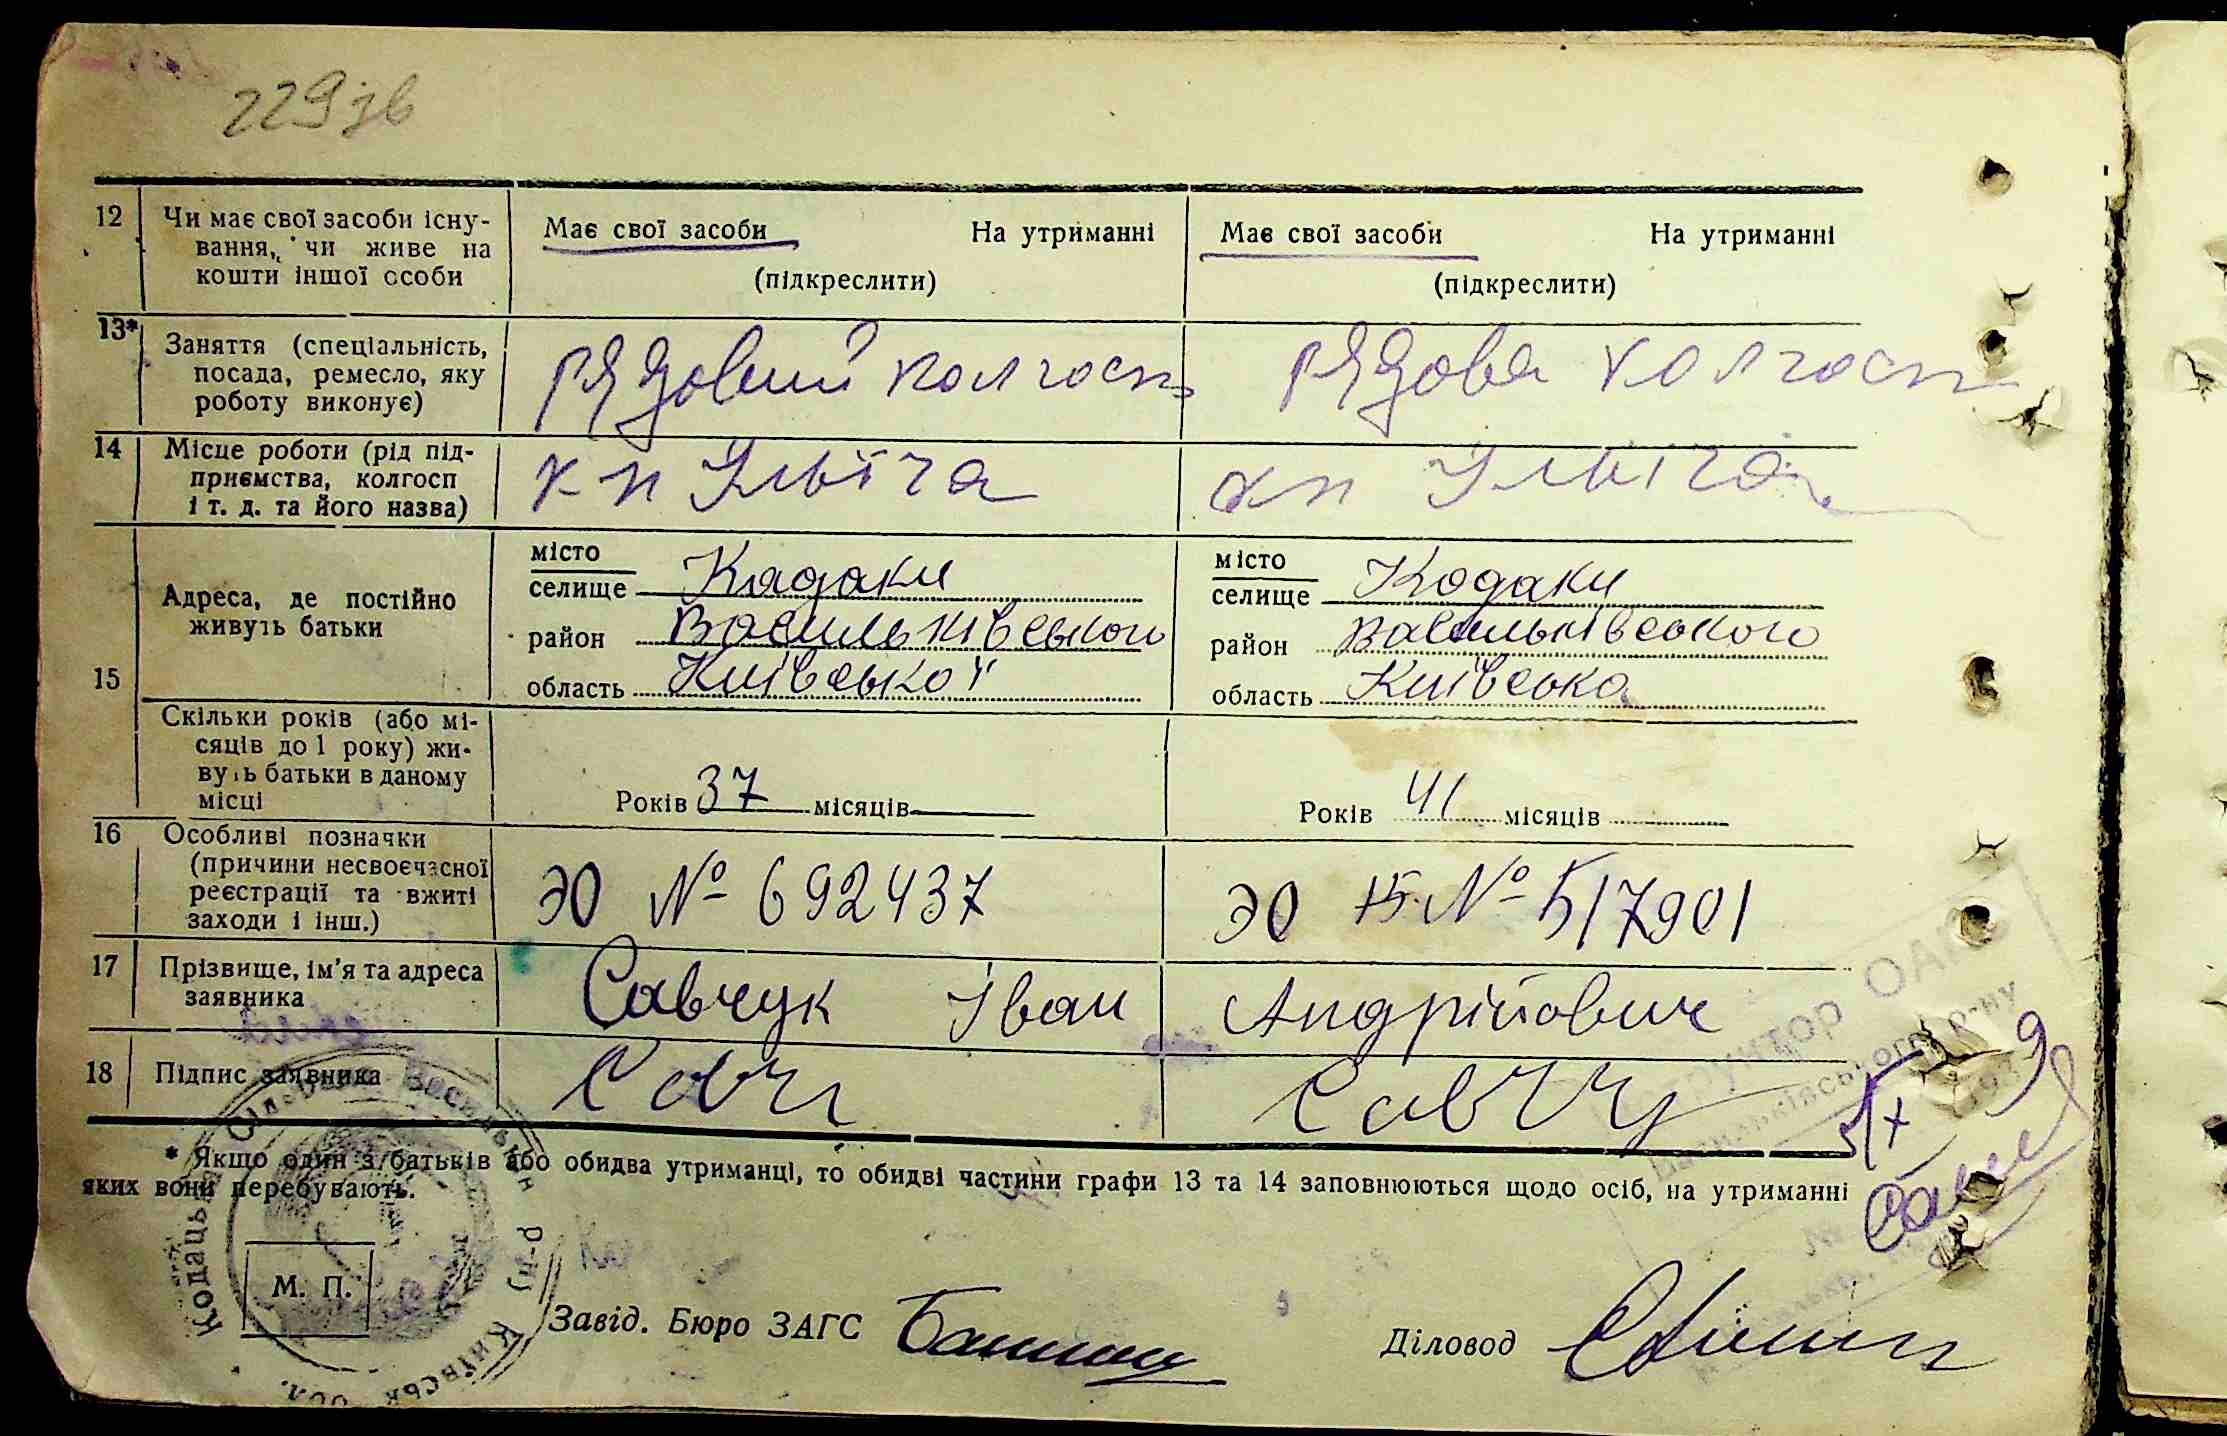 229зв
12 Чи має свої засоби існу-
вання, чи живе на
кошти іншої особи
Має свої засоби На утриманні
(підкреслити)
Має свої засоби На утриманні
(підкреслити)
13* Заняття (спеціальність,
посада, ремесло, яку
роботу виконує)
рядовий колгосп
рядова колгосп
14 Місце роботи (рід під-
приємства, колгосп
і т. д. та його назва)
к-п Ільїча
кп Ільіча
15 Адреса, де постійно
живуть батьки
місто
селище Кадаки
район Васильківського
область Київської
місто
селище Кодаки
район Васильківського
область Київська
Скільки років (або мі-
сяців до 1 року) жи-
вуть батьки в даному
місці
Років 37 місяців
Років 41 місяців
16 Особливі позначки
(причини несвоєчасної
реєстрації та вжиті
заходи і інш.)
ЭО № 692437
ЭО № 517901
17 Прізвище, ім'я та адреса
заявника
Савчук Іван Андрійович
18 Підпис заявника
Савч
* Якщо один з батьків або обидва утриманці, то обидві частини графи 13 та 14 заповнюються щодо осіб, на утриманні
яких вони перебувають.
М. П.
Кодацьк Сільрада Васильк р-н, Київськ обл.
Завід. Бюро ЗАГС
Діловод